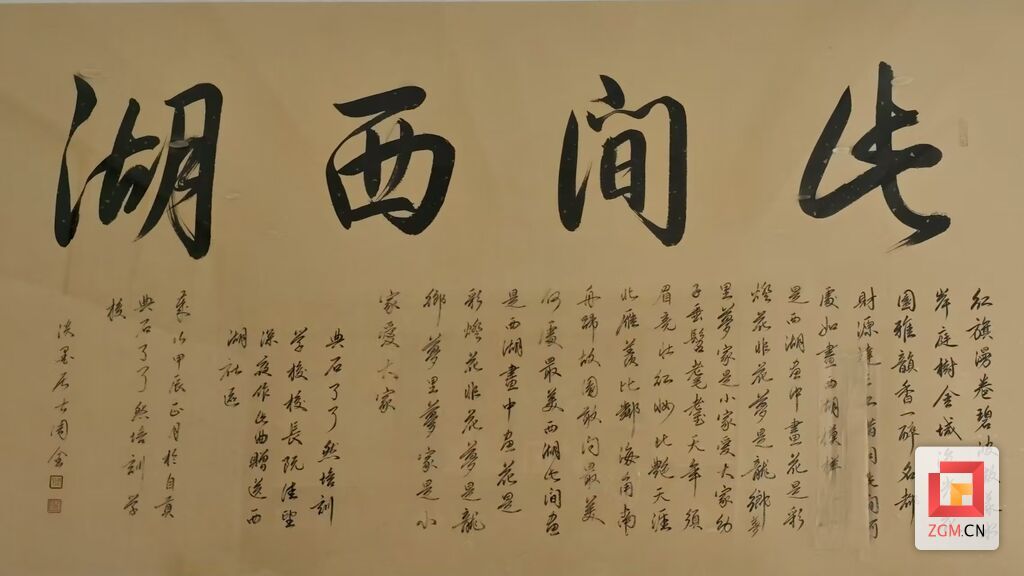 此间西湖
红旗湧卷碧波
岸庭樹金城
園雅韻香一醉名都
財源達三江
處如畫西湖
是西湖画中畫花是彩
燈花非花夢是龍鄉夢
里夢家是小家愛大家幼
子垂髫耄耋天年須
眉竞壮红妝比艷天涯
北雁羨比鄰海角南
舟歸故園敢问最美
何處最美西湖此间画
是西湖畫中画花是
彩燈花非花夢是龍
鄉夢里夢家是小
家愛大家
典石了了然培訓
學校校長阮
深夜作此曲贈送西
湖社區
歲次甲辰正月於自貢
典石了了然培訓學
校
淡墨居士周
ZGM.CN